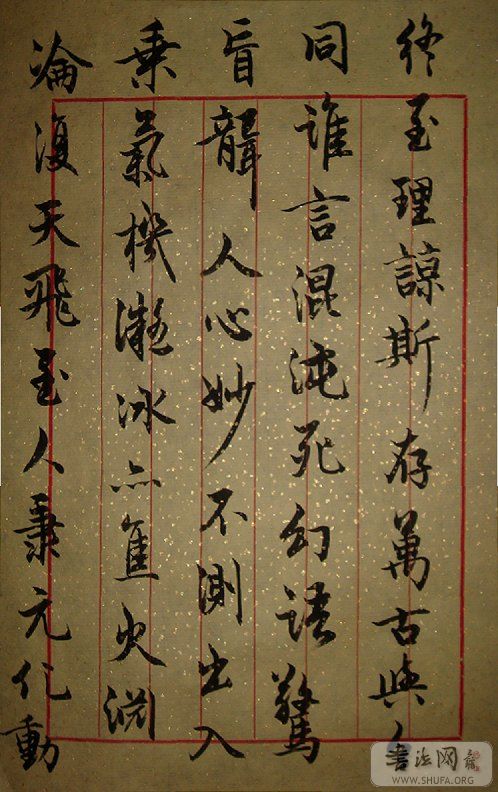 終至理諒斯存萬古與
同誰言混沌死幻語驚
盲聾人心妙不測出入
乘氣機凝冰亦焦火淵
淪復天飛至人秉元化動
書法网
WWW.SHUFA.ORG